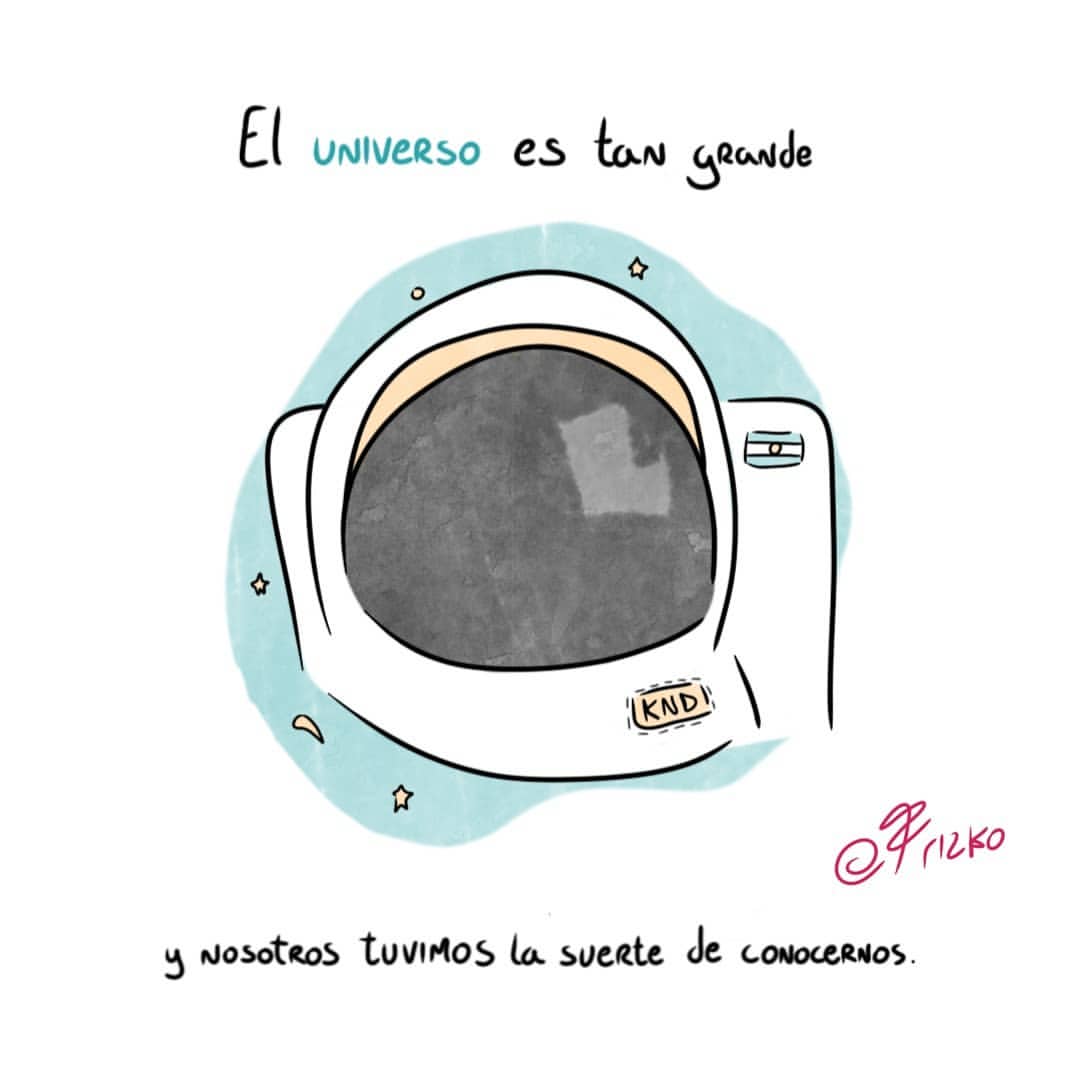 El UNIVERSO es tan grande
KND
@Frizko
y nosotros tuvimos la suerte de conocernos.